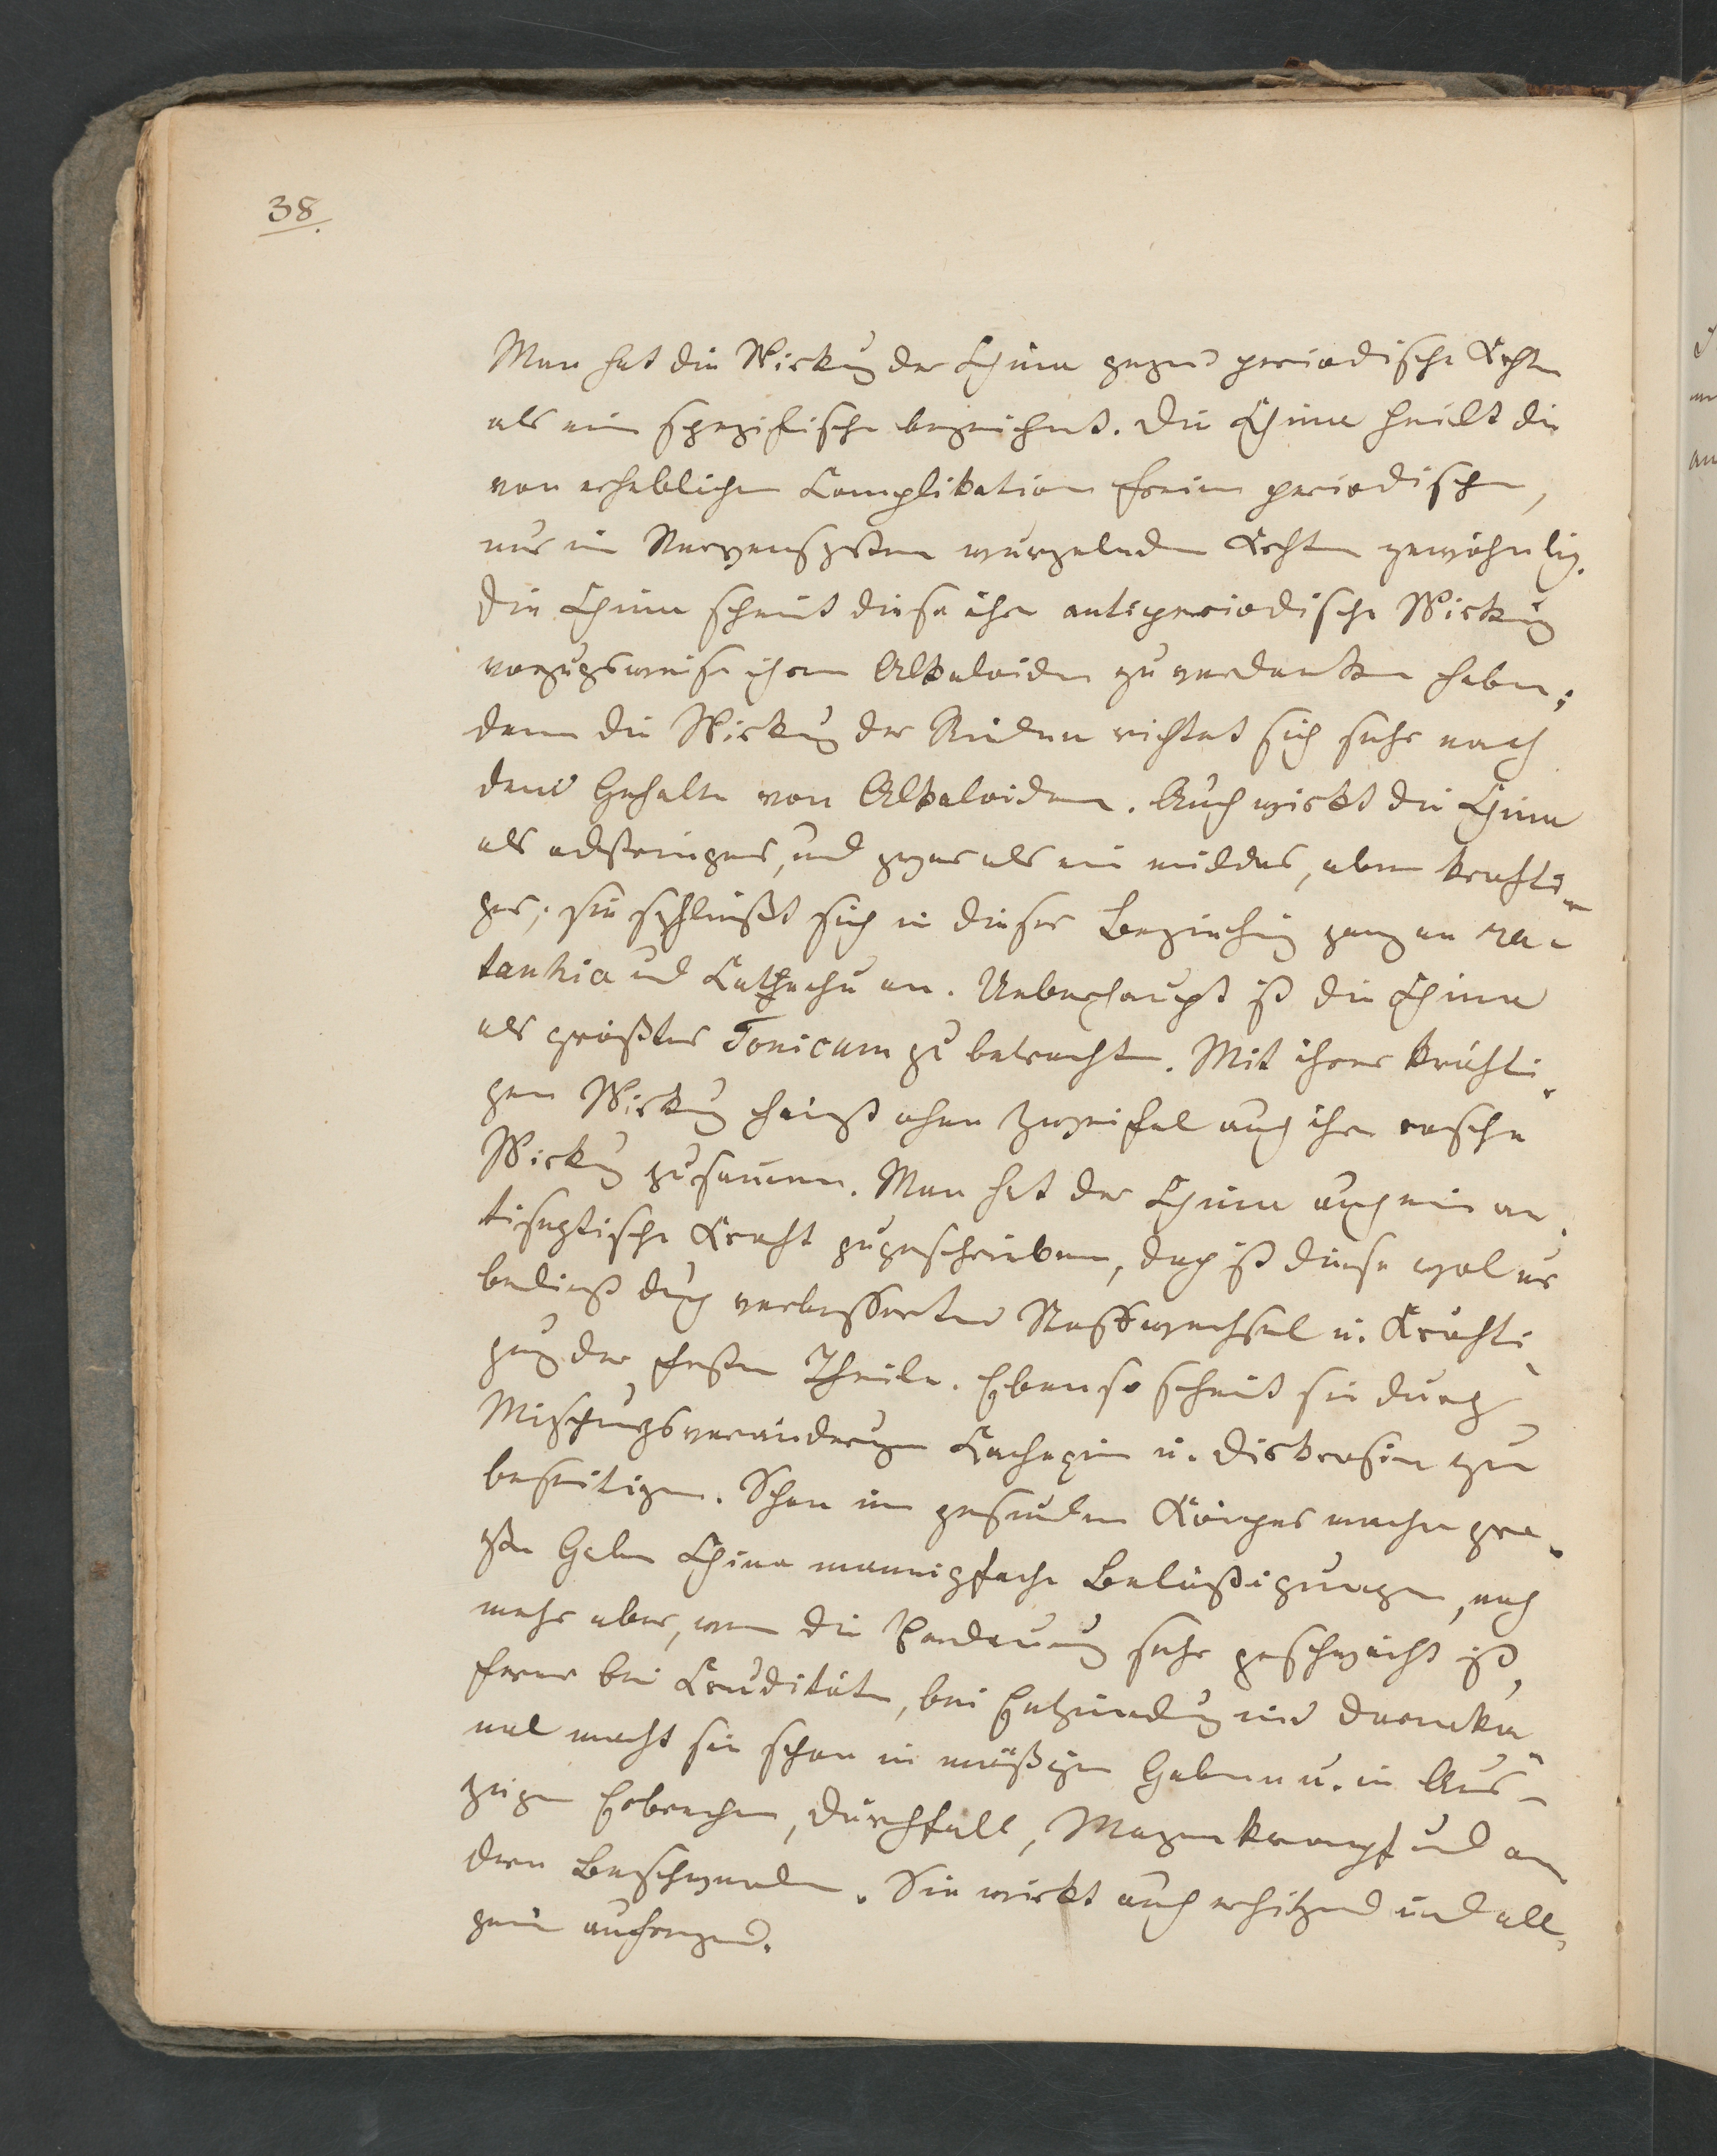 38.
Man hat die Wirkung der China gegen periodische Krkhtn
als eine spezifische bezeichnet. Die China heilt die
von erheblichen Complikationen freien periodischen,
nur im Nervensystem wurzelnden Krkhten gewöhnlich.
Die China scheint diese ihre antiperiodische Wirkung
vorzugsweise ihren Alkaloiden zu verdanken haben;
denn die Wirkung der Rinden richtet sich sehr nach
dem Gehalte von Alkaloiden. Auch wirkt die China
als adstringens, und zwar als ein mildes, aber kräfti-
ges; sie schließt sich in dieser Beziehung ganz an ra-
tanhia und Catechu an. Ueberhaupt ist die China
als größtes Tonicum zu betrachten. Mit ihrer kräfti-
gen Wirkung hängt ohne Zweifel auch ihre rasche
Wirkung zusammen. Man hat der China auch eine an-
tiseptische Kraft zugeschrieben, doch ist diese wol nur
bedingt durch verbesserten Stoffwechsel u. Kräfti-
gung der festen Theile. Ebenso scheint sie durch
Mischungsveränderungen Kachexien u. Diskrasien zu
beseitigen. Schon im gesunden Körper machen gro-
ße Gaben China mannigfache Belästigungen, noch
mehr aber, wenn die Verdauung sehr geschwächt ist,
ferner bei Cruditäten, bei Entzündung im Darmka-
nal macht sie schon in mäßigen Gaben u. in Aus-
zügen Erbrechen, Durchfall, Magenkrampf und an
dere Beschwerden. Sie wirkt auch erhitzend und all-
gemein aufregend.